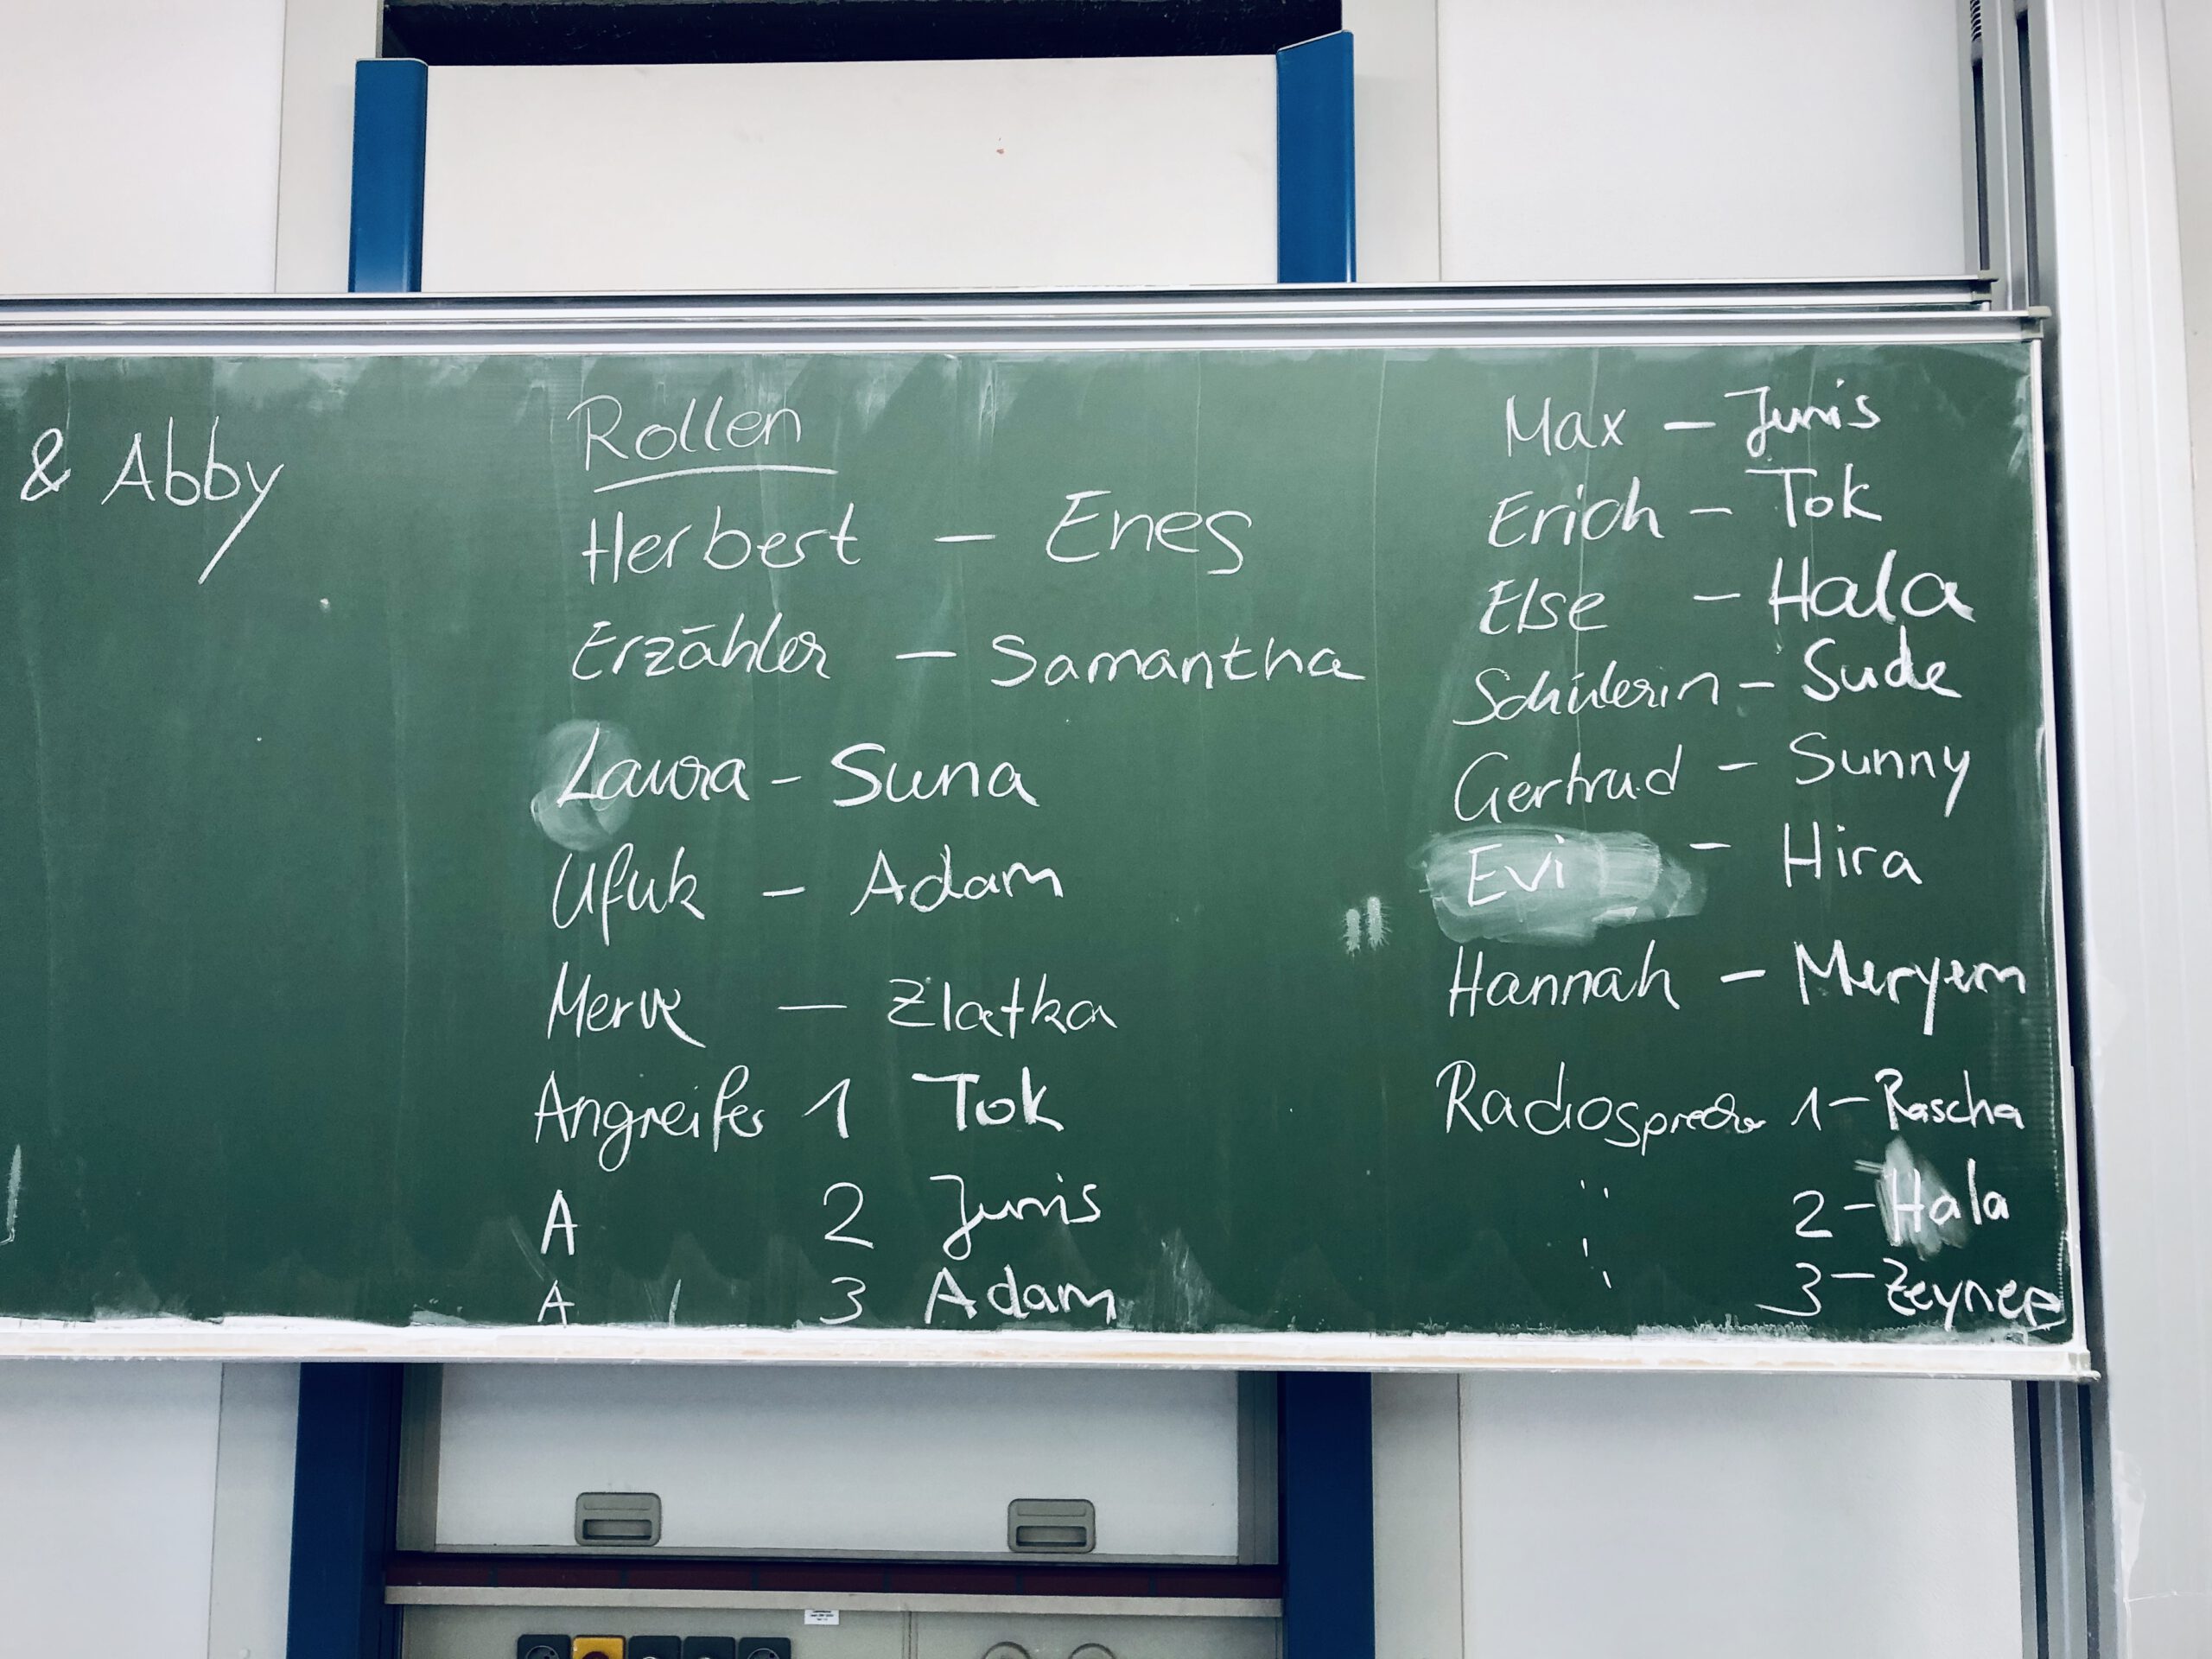 & Abby
Rollen
Herbert – Enes
Erzähler – Samantha
Laura – Suna
Ufuk – Adam
Merve – Zlatka
Angreifer 1 Tok
A 2 Junis
A 3 Adam
Max – Junis
Erich – Tok
Else – Hala
Schülerin – Sude
Gertrud – Sunny
Evi – Hira
Hannah – Meryem
Radiosprecher 1 – Rascha
" 2 – Hala
" 3 – Zeynep